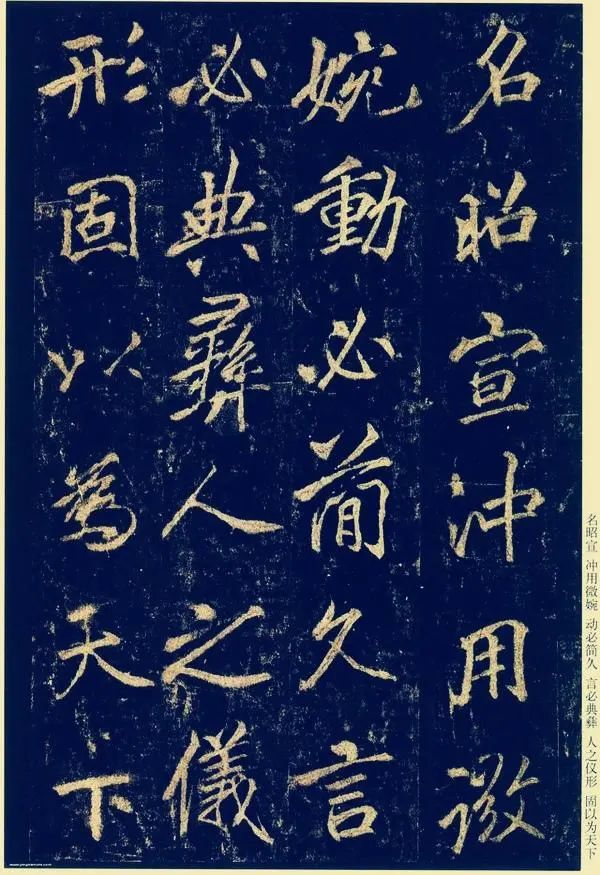 名昭宣沖用微
婉動必簡久言
必典彝人之儀
形固以為天下
名昭宣 冲用微婉 动必简久 言必典彝 人之仪形 固以为天下